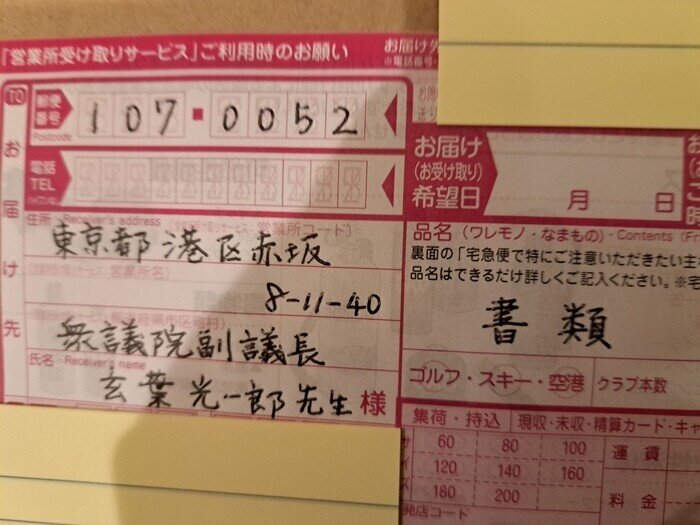 「営業所受け取りサービス」ご利用時のお願い
お届け
※電話番号
TO
お届け先
郵便番号
Postcode
107-0052
電話
TEL
住所 Receiver's address
東京都港区赤坂
8-11-40
衆議院副議長
氏名 Receiver's name
玄葉光一郎先生 様
お届け
(お受け取り)
希望日
月 日
品名 (ワレモノ・なまもの) Contents
裏面の「宅急便で特にご注意いただきたい主
品名はできるだけ詳しくご記入ください。※宅
書類
ゴルフ・スキー・空港
クラブ本数
集荷・持込
現収・未収・精算カード・キャ
60 80 100
120 140 160
180 200
運賃
料金
発店コード